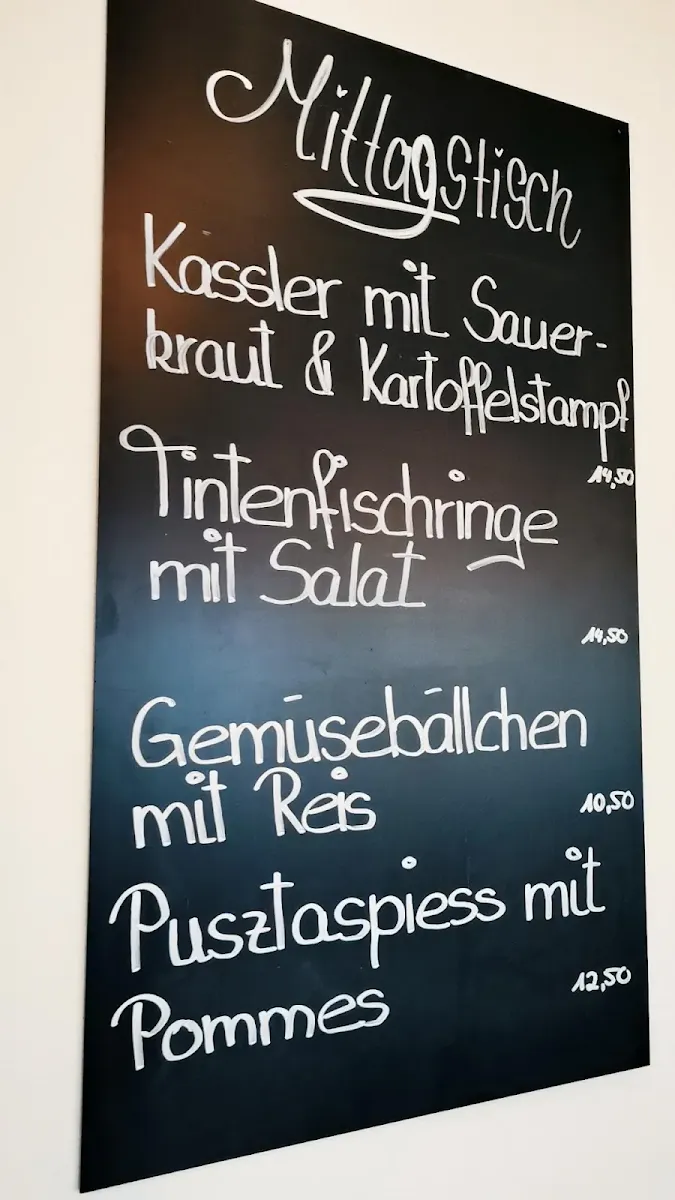 Mittagstisch
Kassler mit Sauer-
kraut & Kartoffelstampf
14,50
Tintenfischringe
mit Salat
14,50
Gemüsebällchen
mit Reis
10,50
Pusztaspiess mit
12,50
Pommes